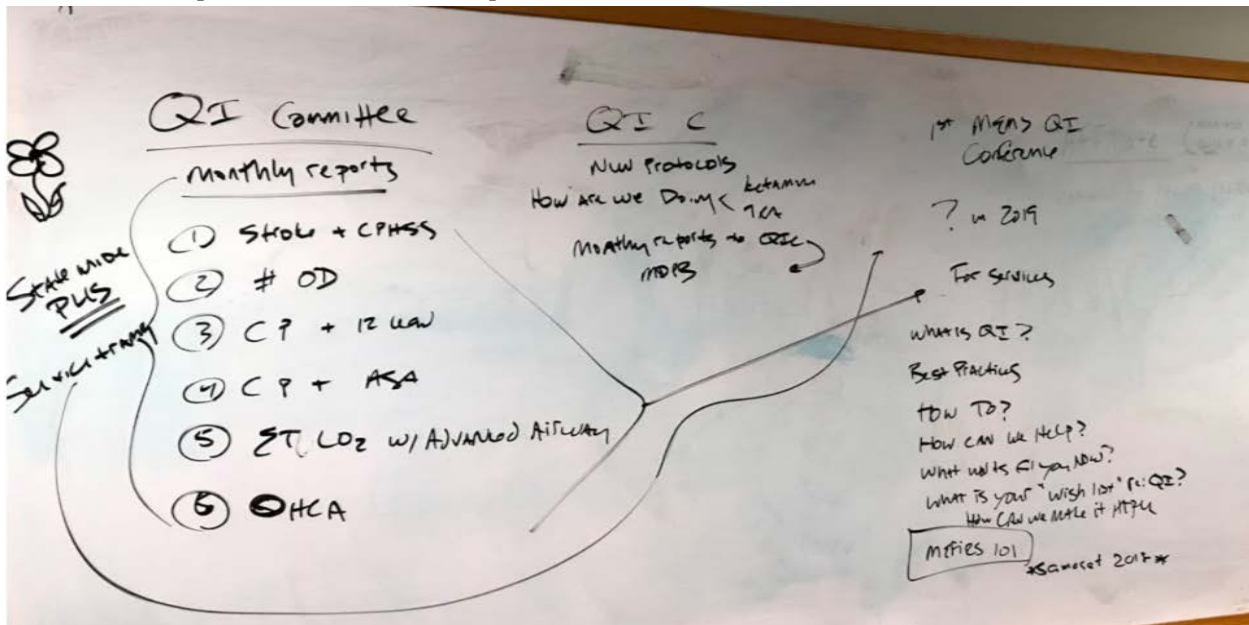 QI Committee
monthly reports
① Stroke + CPHSS
② # OD
③ CP + 12 lead
④ CP + ASA
⑤ ETCO2 w/ Advanced Airway
⑥ OHCA
State wide
PLUS
QI C
New Protocols
How Are we Doing <
Monthly reports to QIC
MDPB
1st MEMS QI
Conference
? in 2019
For services
what is QI?
Best Practices
How To?
How can we Help?
what works for you Now?
what is your "wish list" re: QI?
How can we make it
MEFIRS 101
*Samoset 2018*